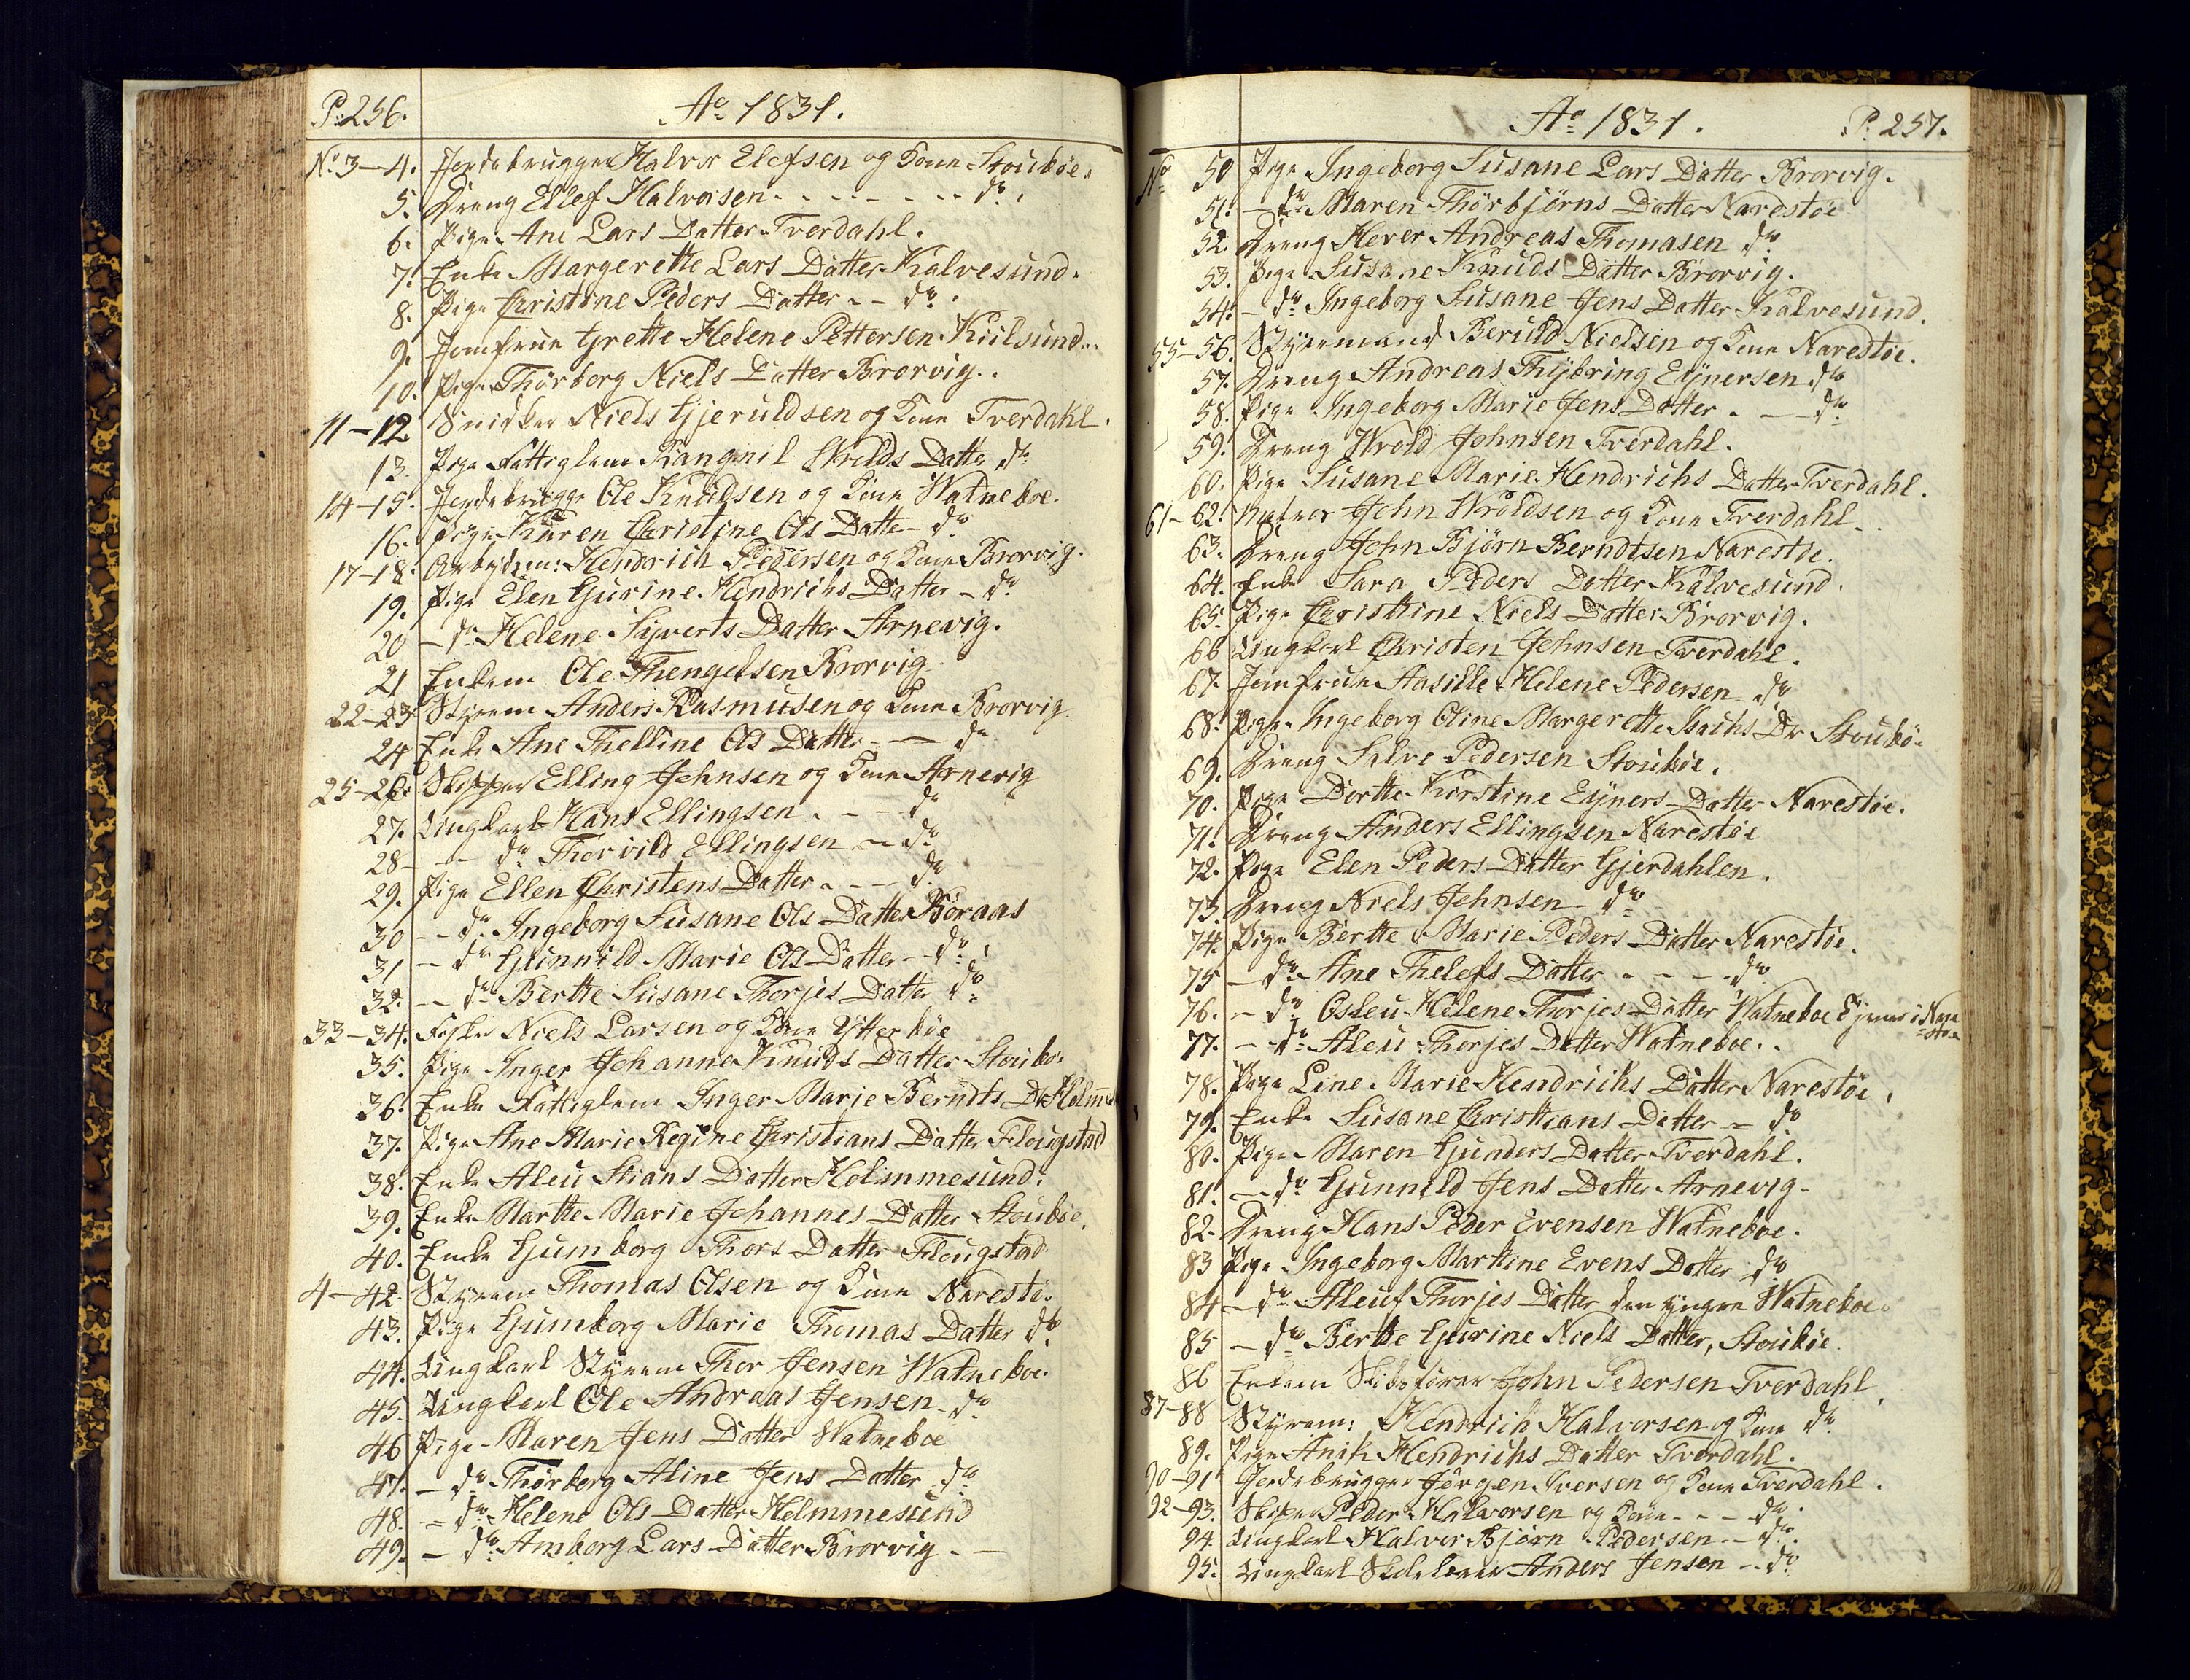 P: 256.
Ao 1831.
No 3-4. Jordebrugger Halvor Elefsen og Kone Stoubøe.
5. Dreng Ellef Halvorsen - - - - do.
6. Pige Ane Lars Datter Tverdahl.
7. Enke Margerette Lars Datter Kalvesund.
8. Pige Christine Peders Datter - - do.
9. Jomfrue Grette Helene Pettersen Kiilsund.
10. Pige Thørborg Niels Datter Brorvig.
11-12 Snidker Niels Gjeruldsen og Kone Tverdahl.
13. Pige Fattiglem Rangnil Datter do
14-15. Jordebrugge Ole Knudsen og Kone Watneboe.
16. Pige Karen Christine Ols Datte - do
17-18. Arbeidsm: Hendrich Pedersen og Kone Brorvig.
19. Pige Elen Gurine Hendrichs Datter - do
20 - do Helene Siverts Datter Arnevig.
21 Enkem Ole Thengelsen Brorvig
22-23 Styrem Anders Rasmusen og Kone Brorvig
24 Enke Ane Thelline Ols Datter - - do
25-26. Skipper Elling Johnsen og Kone Arnevig
27. Ungkarl Hans Ellingsen - - - do
28 - - do Thorvild Ellingsen - do
29. Pige Ellen Christens Datter - - - do
30 - - do Ingeborg Susane Ols Datter Boraas
31 - do Gunnild Marie Ols Datter - do
32. - - do Bertte Susane Thorjes Datter do
33-34. Fisker Niels Larsen og Kone Ytterbøe
35. Pige Inger Johanne Knuds Datter Stoubø
36. Enke Fattiglem Inger Marie Berndts Dr Holm
37. Pige Ane Marie Regine Christians Datter Flougstad
38. Enke Aleu Stians Datter Holmmesund.
39. Enke Martte Marie Johannes Datter Stoubøe.
40. Enke Gumborg Thors Datter Flougstad
4-42. Styrem Thomas Olsen og Kone Narestø.
43. Pige Gumborg Marie Thomas Datter do
44. Ungkarl Styrem Thor Jensen Watneboe.
45. Ungkarl Ole Andraas Jensen - do
46 Pige Maren Jens Datter Watneboe
47. - do Thørborg Aline Jens Datter do
48. - do Helene Ols Datter Holmmesund
49. - do Amborg Lars Datter Brorvig - -
Ao 1831.
P: 257.
No 50 Pige Ingeborg Susane Lars Datter Brorvig.
51. - do Maren Thorbjørns Datter Narestøe
52. Dreng Andreas Thomasen do
53. Pige Susane Knuds Datter Brorvig.
54. - do Ingeborg Susane Jens Datter Kalvesund.
55-56. Styremand Beruld Nielsen og Kone Narestøe.
57. Dreng Andreas Thybring Eynersen do
58. Pige Ingeborg Marie Jens Datter - - do
59. Dreng Wrold Johnsen Tverdahl.
60. Pige Susane Marie Hendrichs Datter Tverdahl.
61-62. Matros John Wroldsen og Kone Tverdahl -
63. Dreng John Bjørn Berndtsen Narestøe.
64. Enke Sara Peders Datter Kalvesund.
65. Pige Christine Niels Datter Brorvig.
66 Ungkarl Christen Johnsen Tverdahl.
67. Jomfrue Asille Helene Pedersen do
68. Pige Ingeborg Oline Margerette Isachs Dr Stoubø.
69. Dreng Salve Pedersen Stoubøe.
70. Pige Dortte Kirstine Eyners Datter Narestøe.
71. Dreng Anders Ellingsen Narestøe
72. Pige Elen Peders Datter Gjerdahlen.
73. Dreng Niels Johnsen - do
74. Pige Bertte Marie Peders Datter Narestøe.
75 - do Ane Thelefs Datter - - - do
76. - do Osleu Helene Thorjes Datter Watneboe tjener i Nare
støe
77. - do Aleu Thorjes Datter Watneboe.
78. Pige Line Marie Hendrichs Datter Narestøe.
79. Enke Susane Christians Datter - do
80. Pige Maren Gunders Datter Tverdahl.
81. - do Gunnild Jens Datter Arnevig -
82. Dreng Hans Peder Evensen Watneboe.
83 Pige Ingeborg Martine Evens Datter do
84 - do Aleuf Thorjes Datter den yngre Watneboe.
85 - do Bertte Gurine Niels Datter, Stoubøe.
86 Enkem Skibsfører John Pedersen Tverdahl.
87-88 Styrem: Hendrich Halvorsen og Kone do
89. Pige Anik Hendrichs Datter Tverdahl.
90-91 Jordebrugger Jørgen Iversen og Kone Tverdahl.
92-93. Skiper Peder Halvorsen og Kone - - - do.
94. Ungkarl Halvor Bjørn Pedersen - - do.
95. Ungkarl Skolelærer Anders Jensen - - do